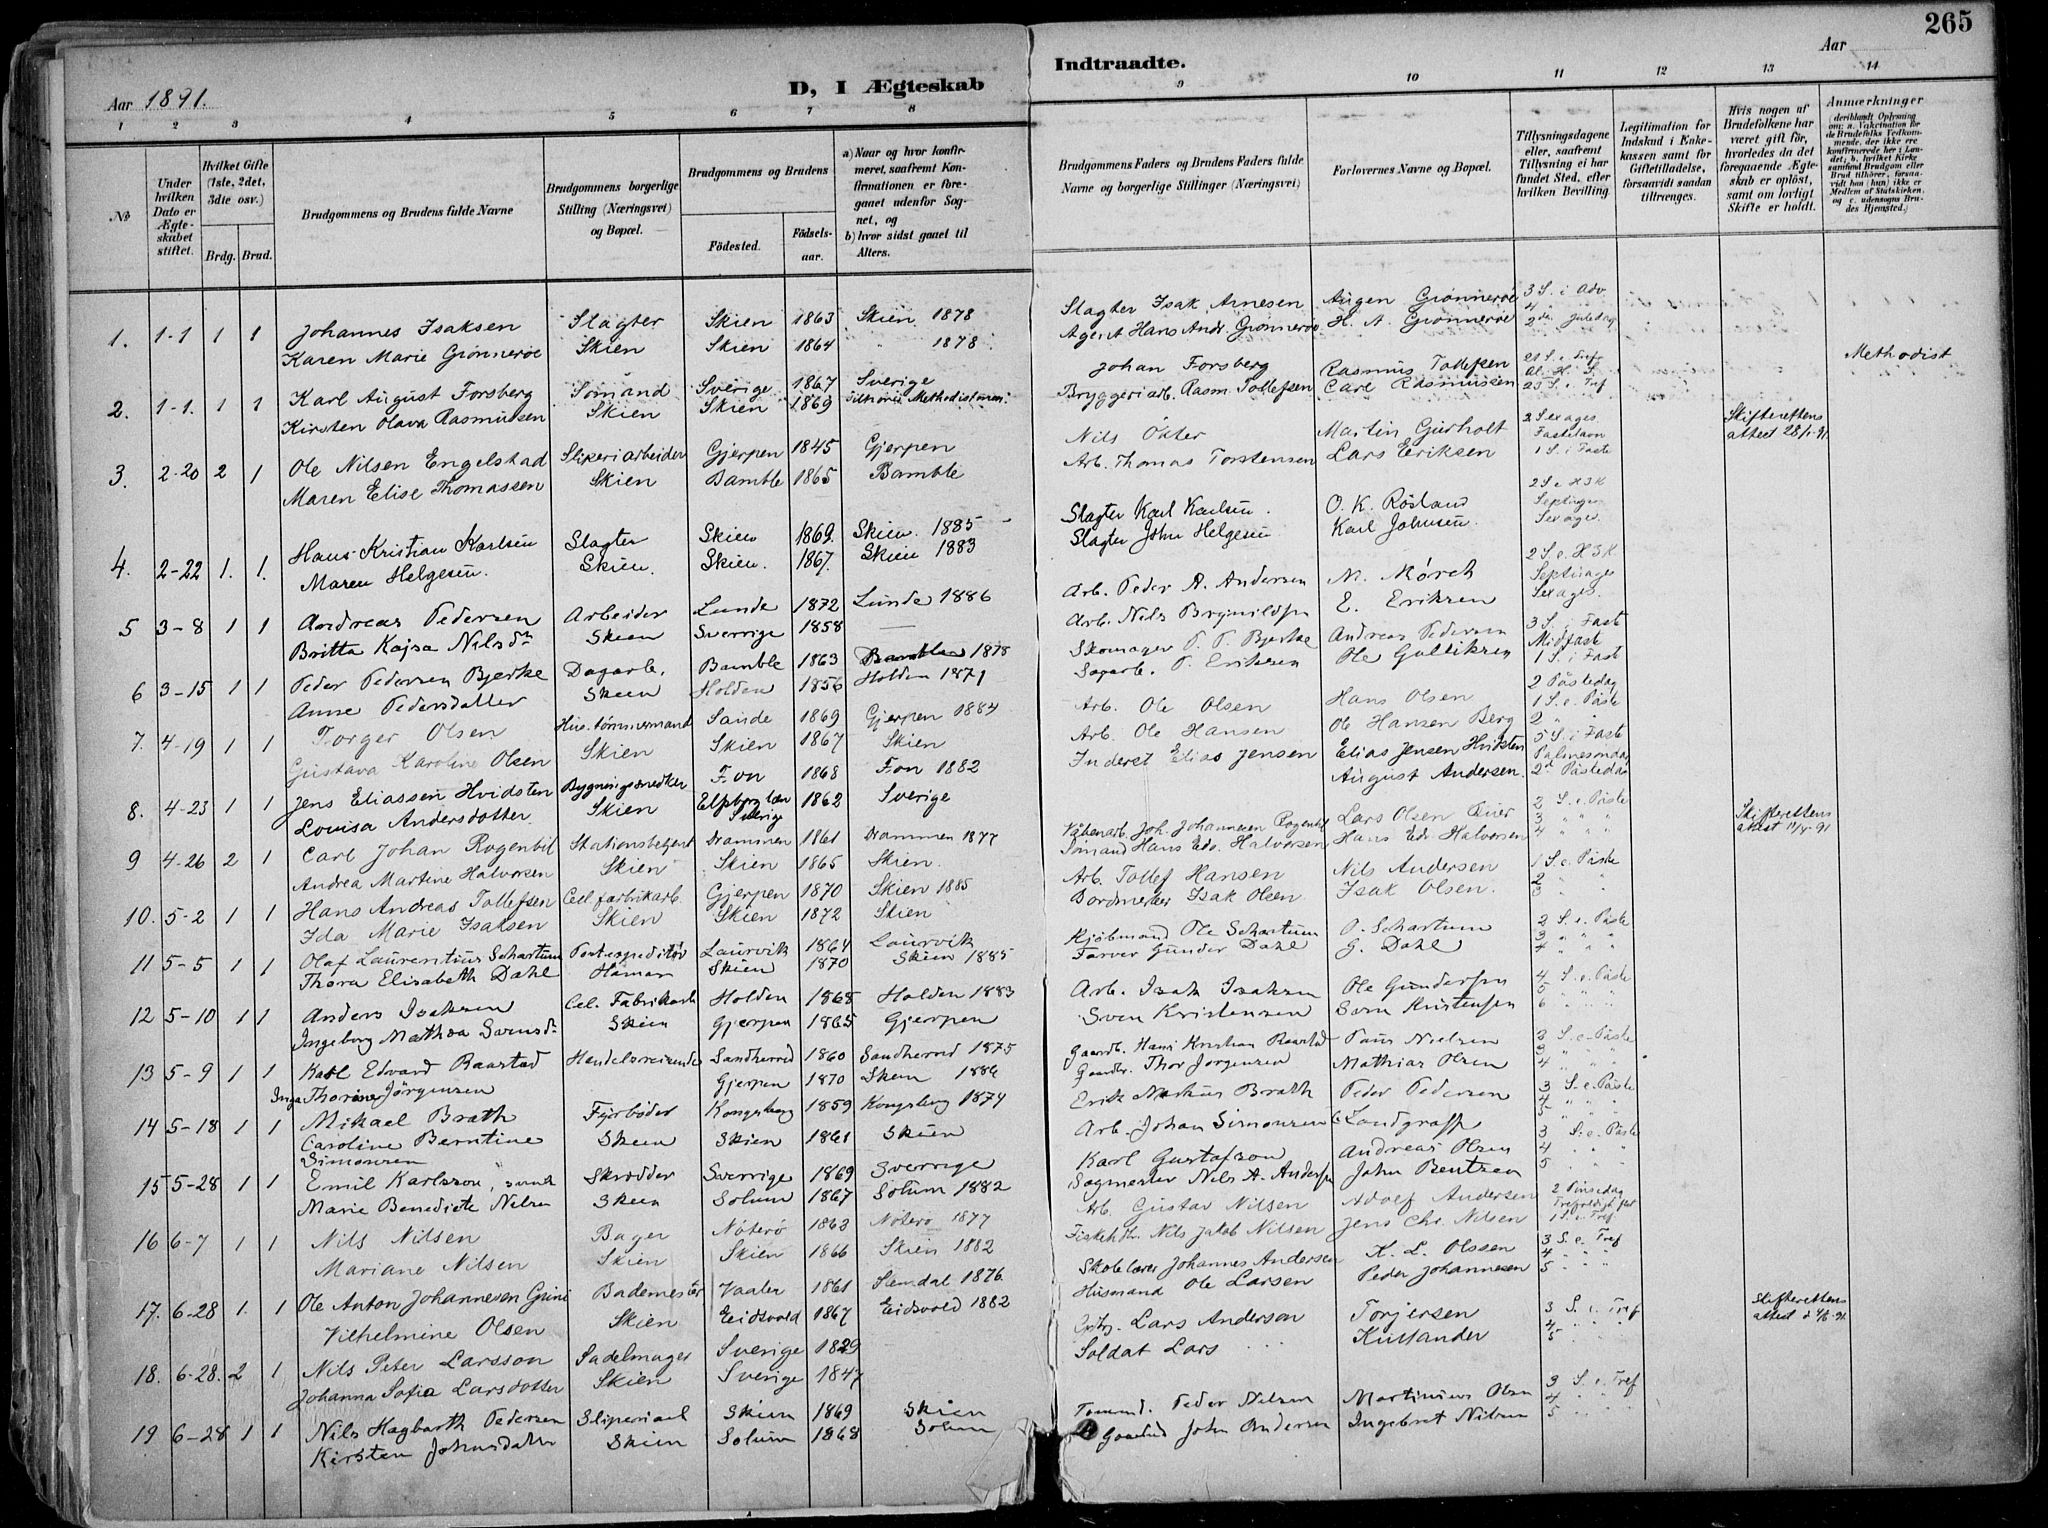 265
Aar 1891.
D, I Ægteskab
Indtraadte.
Aar
1 2 3 4 5 6 7 8 9 10 11 12 13 14
No
Under hvilken Dato er Ægteskabet stiftet.
Hvilket Gifte (1ste, 2det, 3die osv.)
Brdg. Brud.
Brudgommens og Brudens fulde Navne
Brudgommens borgerlige Stilling (Næringsvei) og Bopæl.
Brudgommens og Brudens
Födested.
Födsels-aar.
a) Naar og hvor konfirmeret, saafremt Konfirmationen er foregaaet udenfor Sognet, og
b) hvor sidst gaaet til Alters.
Brudgommens Faders og Brudens Faders fulde Navne og borgerlige Stillinger (Næringsvei)
Forlovernes Navne og Bopæl.
Tillysningsdagene eller, saafremt Tillysning ei har fundet Sted, efter hvilken Bevilling.
Legitimation for Indskud i Enkekassen samt for Giftetilladelse, forsaavidt saadan tiltrænges.
Hvis nogen af Brudefolkene har været gift för, hvorledes da det foregaaende Ægteskab er oplöst, samt om lovligt Skifte er holdt.
Anmærkninger
(deriblandt Oplysning om: a. Vakcination for de Brudefolks Vedkommende, der ikke ere konfirmerede her i Landet; b. hvilket Kirkesamfund Brudgom eller Brud tilhörer, forsaavidt han (hun) ikke er Medlem af Statskirken, og c. udensogns Brudes Hjemsted.)
1. 1-1 1 1 Johannes Isaksen Slagter Skien 1863 Skien 1878 Slagter Isak Arnesen Augen Grønnerøe 3 S. i Adv
Karen Marie Grønnerøe Skien Skien 1864 " 1878 Agent Hans Andr. Grønnerøe H. A. Grønnerøe 4 " 2den Juledag
2. 1-1. 1 1 Karl August Forsberg Sømand Sverige 1867 Sverige Johan Forsberg Rasmus Tollefsen Methodist
Kirsten Olava Rasmussen Skien Skien 1869 Bryggeriarb. Rasm Tollefsen Carl Rasmussen 25 S. e. Tref
3. 2-20 2 1 Ole Nilsen Engelstad Sliperiarbeider Gjerpen 1845 Gjerpen Nils Martin Gurholt 2 Sexages. Fastelavn Skifterettens attest
Maren Elise Thomassen Skien Bamble 1865 Bamble Arb. Thomas Torstensen Lars Eriksen 1 S. i Faste
4. 2-22 1. 1. Hans Kristian Karlsen Slagter Skien 1869. Skien. 1885 Slagter Karl Karlsen. O. K. Røsland Septuages
Maren Helgesen. Skien. Skien. 1867. Skien 1883 Slagter John Helgesen Karl Johnsen. Sexages.
5 3-8 1 1 Andreas Pedersen Arbeider Lunde 1872 Lunde 1886 Arb. Peder A. Andersen M. Mörch 2 S. e. H 3 K Septuages
Britta Kajsa Nilsdtr Skien Sverrige 1858 — Arb. Nils E. Eriksen Sexages.
6 3-15 1 1 Peder Pedersen Bjerke Dagarb. Bamble 1863 Bamble 1878 Skomager P. P. Bjerke Andreas Pedersen 3 S. i Fast Midfast
Anne Pedersdatter Skien Holden 1856 Holden 1871 Sagarb. P. Eriksen Ole Gulliksen 1 S. i Fast
7. 4-19 1 1 Torger Olsen Hustømmermand Sande 1869 Gjerpen 1884 Arb. Ole Olsen Hans Olsen 2 Påskedag 1 S. e. Påske
Gustava Karoline Olsen Skien Skien 1867 Skien Arb. Ole Hansen Ole Hansen Berg 2 " "
8. 4-23 1 1 Jens Eliassen Hvidsten Bygningssnedker Fon 1868 Fon 1882 Inderst Elias Jensen Elias Jensen Hvidsten 5 S. i Fast Palmesøndag
Lovisa Andersdotter Skien Elfsborg læn Sverige 1862 Sverige August Andersen. 2d Påskedag
9 4-26 2 1 Carl Johan Rogenbil Stationsbetjent Drammen 1861 Drammen 1877 Våbenarb. Joh. Johannesen Rogenbil Lars Olsen 2 S. e. Påske 3 " " " Skifterettens attest
Andrea Martine Halvorsen Skien Skien 1865 Skien. Sømand Hans Edv. Halvorsen Hans Edv. Halvorsen 4 " " "
10. 5-2 1 1 Hans Andreas Tollefsen Cell. fabrikarb. Gjerpen 1870 Skien 1885 Arb. Tollef Hansen Nils Andersen 1 S. e. Påske 2 " "
Ida Marie Isaksen Skien Skien 1872 Skien Bordmester Isak Olsen Isak Olsen. 3
11 5-5 1 1 Olaf Laurentius Schartum Postexpeditør Laurvik 1864 Laurvik Kjöbmand Ole Schartum O. Schartum 2 S. e. Påske 3 " " "
Thora Elisabeth Dahl Hamar Skien 1870 Skien 1885 Farver Gunder Dahl G. Dahl 4 " " "
12 5-10 1 1 Anders Isaksen Cel. Fabrikarb Holden 1868 Holden 1883 Arb. Isak Isaksen Ole Gundersen 4 S. e. Påske 5 " " "
Ingeborg Mathea Svensdtr Skien Gjerpen 1865 Gjerpen Sven Kristensen Sven Kristensen 6 " " "
13 5-9 1 1 Karl Edvard Raastad Handelsreisende Sandherred 1860 Sandherred 1875 Gaardb. Hans Kristian Raastad Paus Nielsen 2 S. e. Påske 3 " " "
Inga Thorine Jörgensen Gjerpen 1870 Skien 1886 Gaardbr. Thor Jørgensen Mathias Olsen 4 " " "
14 5-18 1 1 Mikael Brath Fyrböder Kongsberg 1859 Kongsberg 1874 Erik Markus Brath Peder Pedersen 3 S. e. Påske 4 " " "
Caroline Berntine Simonsen Skien Skien 1861 Skien Arb. Johan Simonsen Landgraff 5 " " "
15 5-28 1 1 Emil Karlsson, svensk Skrædder Sverrige 1869 Sverrige Karl Gustafson Andreas Olsen 3 S. e. Påske 4 " " "
Marie Benedicte Nilsen Skien Solum 1867 Solum 1882 Sagmester Nils A. Andersen John Bentsen 5 " " "
16 6-7 1 1 Nils Nilsen Bager Nöterö 1863 Nöterö 1877 Arb. Gustav Nilsen Adolf Andersen 2 Pinsedag
Mariane Nilsen Skien Skien 1866 Skien 1882 Fiskehdlr. Nils Jakob Nilsen Jens Chr. Nilsen 1 S. e. Tref
17. 6-28 1. 1 Ole Anton Johannesen Grini Bademester Vaaler 1861 1876. Skolelærer Johannes Andersen K. L. Olssen 3 S. e. Tref 4 " "
Vilhelmine Olsen Skien Eidsvold 1867 Eidsvold 1882 Husmand Ole Larsen Peder Johannesen 5 " " "
18. 6-28. 2 1 Nils Peter Larsson Sadelmager Sverige 1829 Lars Anderson Torjersen 3 S. e. Tref 4 " " Skifterettens attest
Johanna Sofia Larsdotter Skien Sverige 1847 Soldat Lars ... Kullander 5
19 6-28 1 1 Nils Hagbarth Pedersen Skien 1869 Skien Peder Nilsen Martinius Olsen 3 S. e. Tref 4 " "
Kirsten Johnsdatter Skien Solum 1868 Solum John Andersen Ingebret Nilsen 5